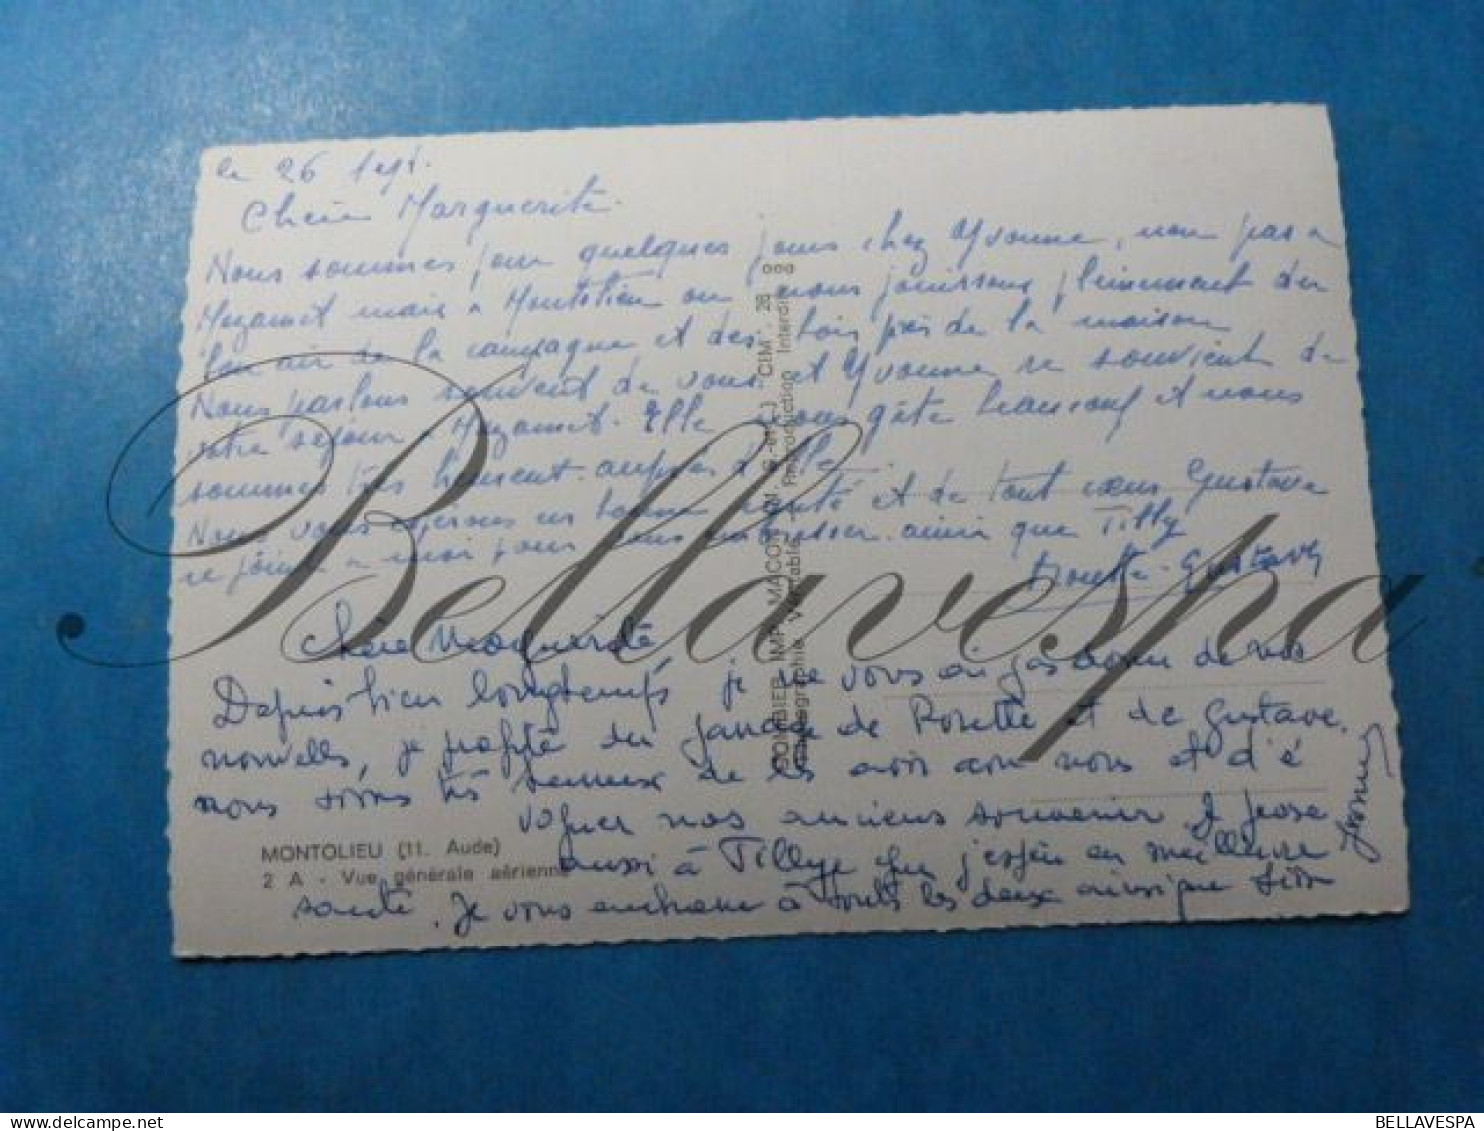 le 26 Sept.
Chère Marguerite.
Nous sommes pour quelques jours chez Yvonne, non pas à
Mazamet mais à Montolieu où nous jouissons pleinement du
bon air de la campagne et des bois près de la maison
Nous parlons souvent de vous et Yvonne se souvient de
votre séjour à Mazamet. Elle nous gâte beaucoup et nous
sommes très auprès d'elle.
Nous vous espérons en bonne santé et de tout coeur Gustave
se joint à moi pour vous embrasser ainsi que Tilly
Gustave
Chère Marguerite,
Depuis bien longtemps je ne vous ai pas donné de nos
nouvelles, je profite du passage de Rosette et de Gustave.
nous sommes très heureux de les avoir avec nous et d'é
voquer nos anciens souvenirs. Je pense
aussi à Tillye que j'espère en meilleure
santé. Je vous embrasse à toutes les deux ainsi que
Yvonne
MONTOLIEU (11. Aude)
2 A - Vue générale aérienne
COMBIER IMP. MACON (S.-et-L.) "CIM"
Photographie Véritable - Reproduction Interdite
Bellavespa
BELLAVESPA
delcampe.net